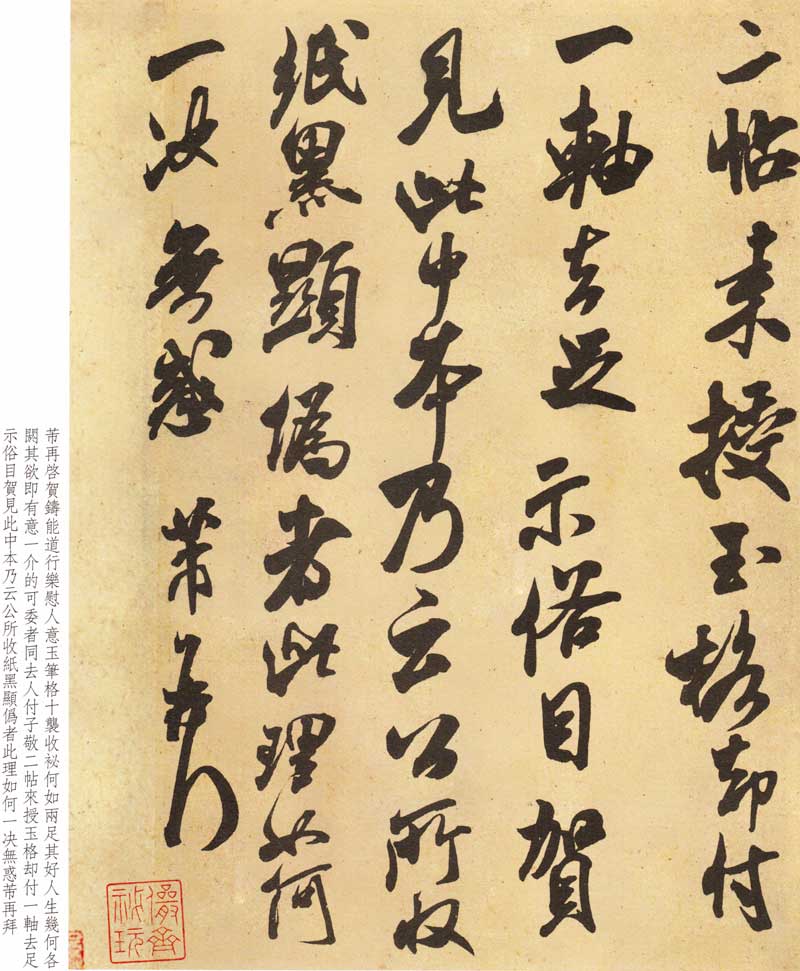 二帖来授玉格却付
一軸去足示俗目賀
見此中本乃云公所收
紙黑顯偽者此理如何
一决無惑芾再拜
芾再啓賀鑄能道行樂慰人意玉筆格十襲收祕何如兩足其好人生幾何各
閼其欲即有意一介的可委者同去人付子敬二帖來授玉格却付一軸去足
示俗目賀見此中本乃云公所收紙黑顯僞者此理如何一决無惑芾再拜
儼齋祕玩